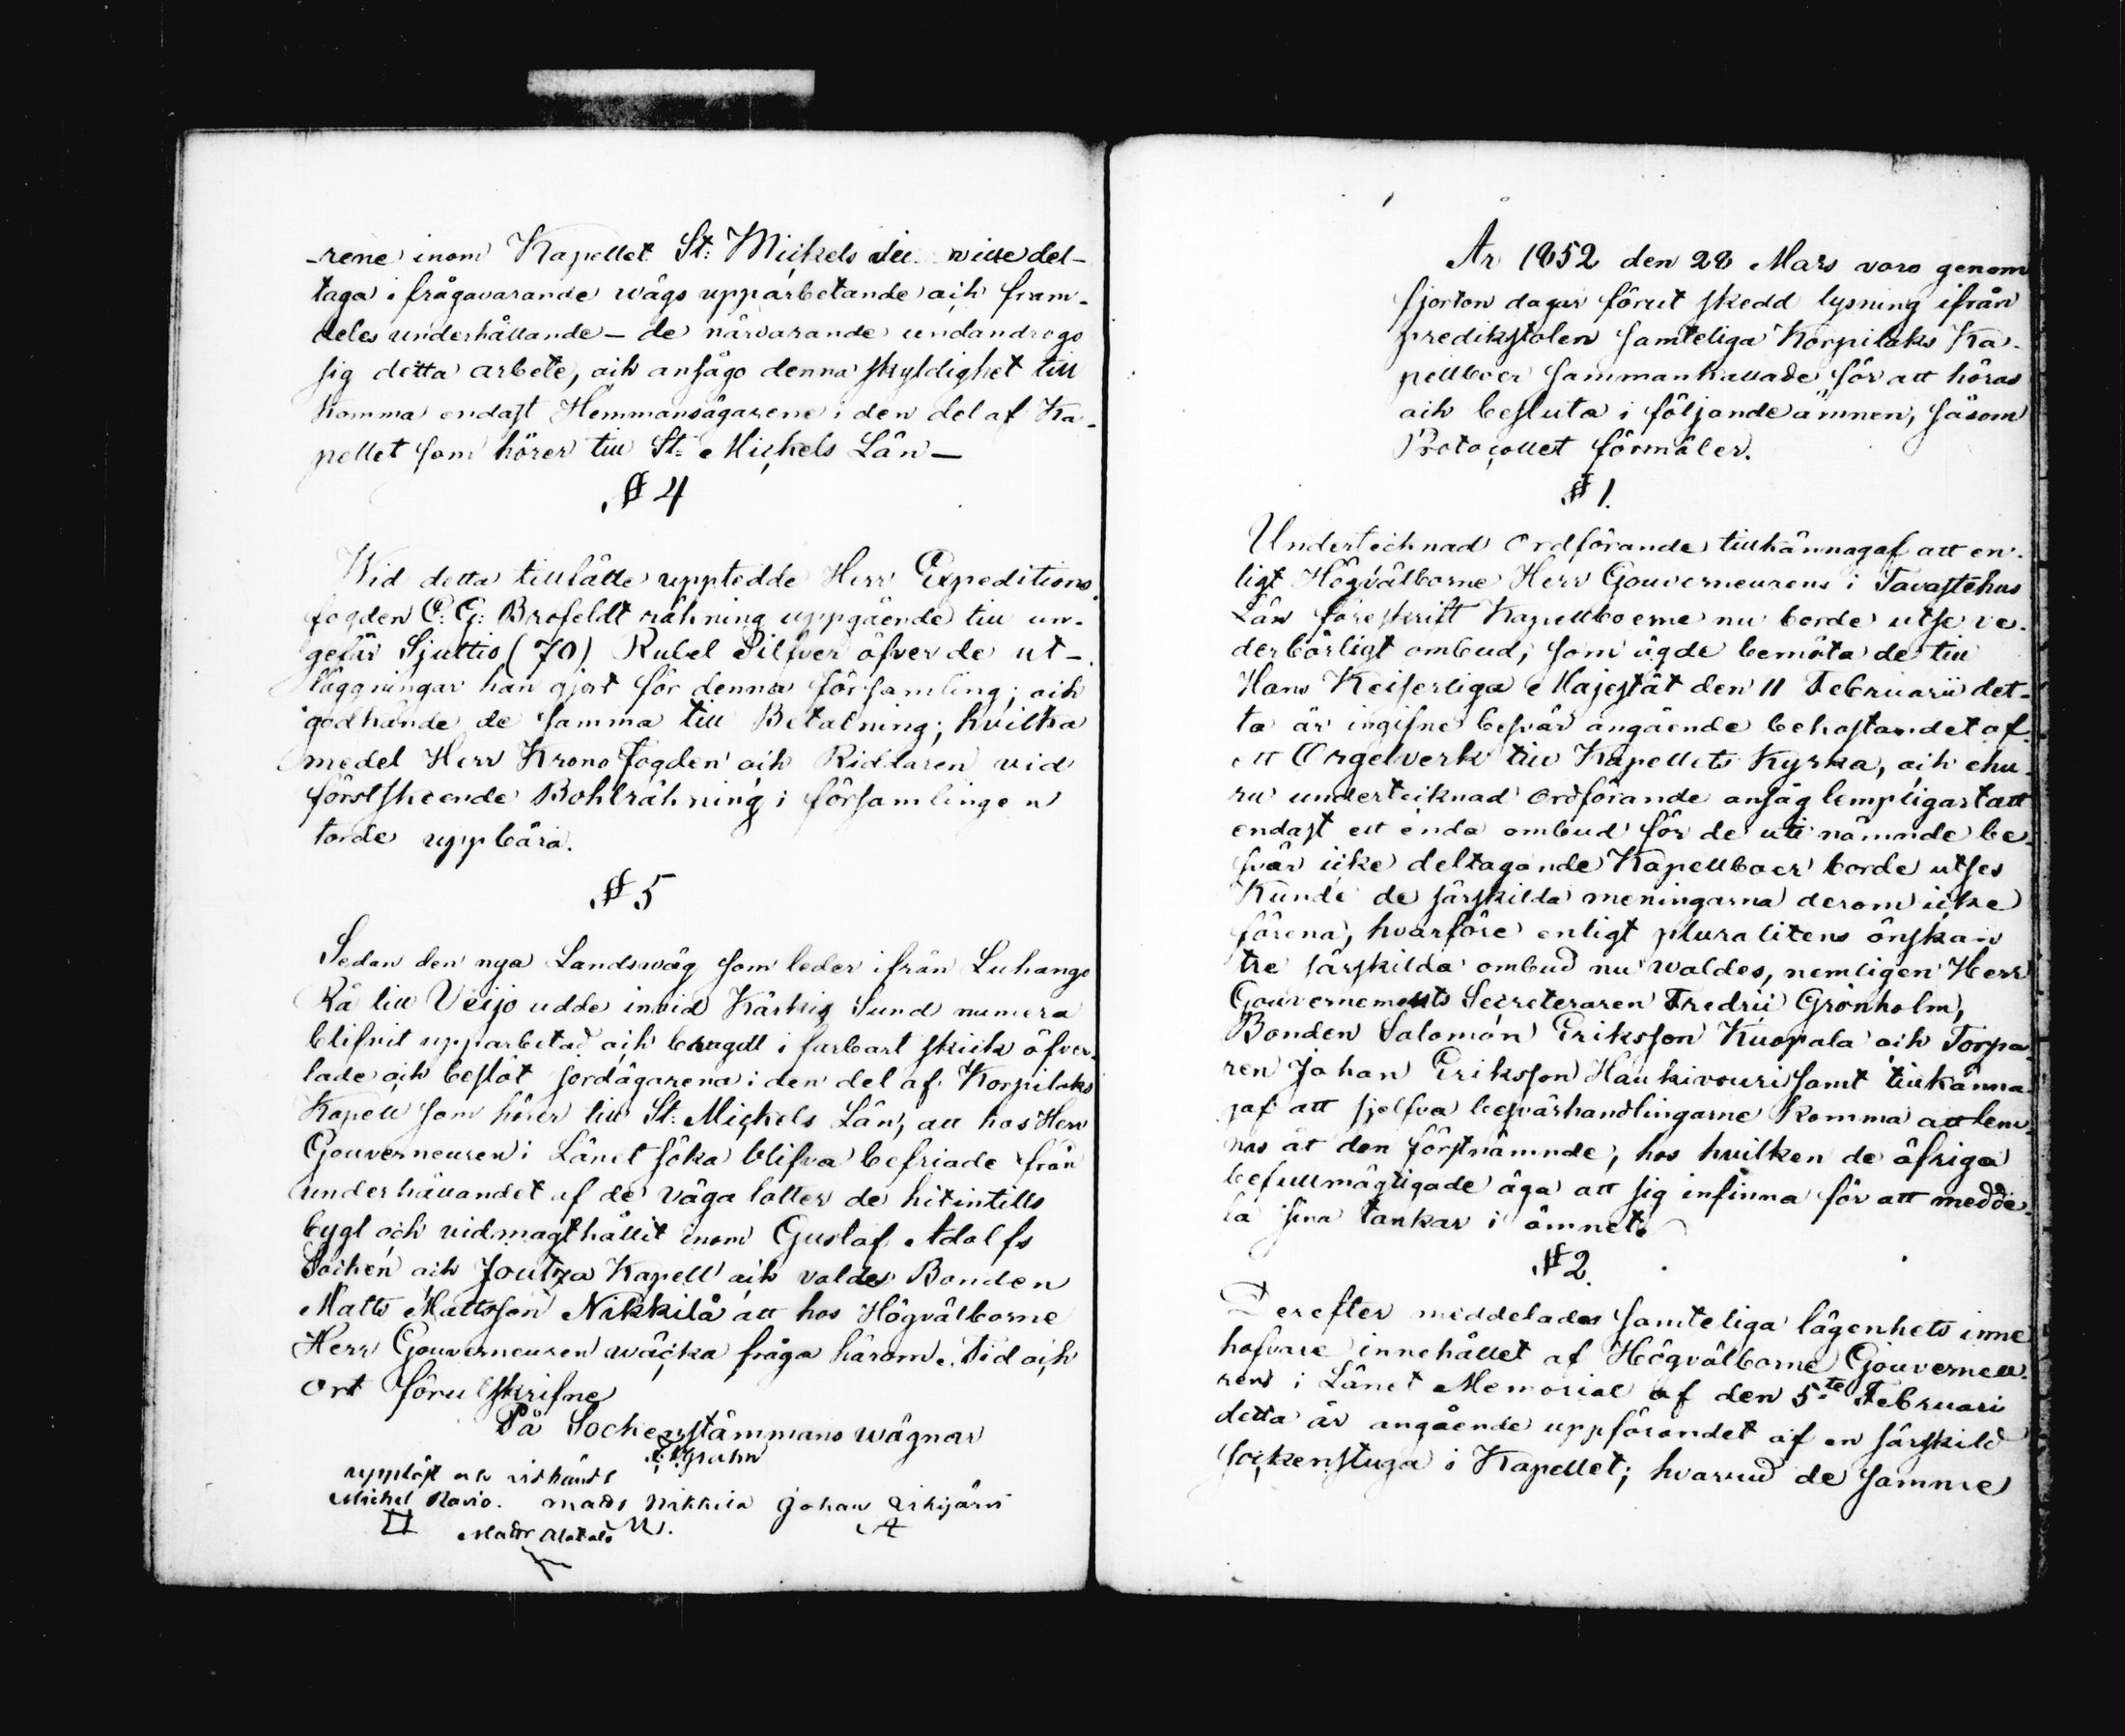 -rene inom Kapellet St: Michels Län wille del-
taga i frågavarande wägs upparbetande och fram-
deles underhållande – de närvarande undandrogo
sig detta arbete, och ansågo denna skyldighet till
komma endast Hemmansägarene i den del af Ka-
pellet som hörer till St: Michels Län –
§ 4
Wid detta tillfälle upptedde Herr Expeditions
fogden C: G: Brofeldt räkning uppgående till un-
gefär Sjuttio (70) Rubel Silfver öfver de ut-
läggningar han gjort för denna församling; och
godkände de samma till Betalning; hvilka
medel Herr Krono Fogden och Riddaren vid
förstskeende Bohlräkning i församlingen
torde uppbära.
§ 5
Sedan den nya Landswäg som leder ifrån Luhango
Rå till Veijo udde invid Kärkis Sund numera
blifvit upparbetad och bragdt i farbart skick öfver-
lade och beslöt jordägarena i den del af Korpilaks
Kapell som hörer till St: Michels Län, att hos Herr
Gouverneuren i Länet söka blifva befriade från
underhållandet af de väga lotter de hitintills
bygt och vidmagthållit inom Gustaf Adolfs
Sochen och Joutza Kapell och valdes Bonden
Matts Mattsson Nikkilä att hos Högvälborne
Herr Gouverneuren wäcka fråga härom. Tid och
ort förutskrifne
På Sockenstämmans wägnar
uppläst och vidkändt
Michel Ravio. Mats Nikkilä Johan
År 1852 den 28 Mars voro genom
fjorton dagar förut skedd lysning ifrån
predikstolen samteliga Korpilaks Ka-
pellboer sammankallade för att höras
och besluta i följande ämnen, såsom
Protocollet förmäler.
§ 1.
Undertecknad Ordförande tillkännagaf att en-
ligt Högvälborne Herr Gouverneurens i Tavastehus
Län föreskrift Kapellboerne nu borde utse ve-
derbörligt ombud, som ägde bemöta de till
Hans Keiserliga Majestät den 11 Februarii det-
ta år ingifne besvär angående bekostandet af
ett Orgelverk till Kapellets Kyrka, och ehu-
ru undertecknad ordförande ansåg lempligast att
endast ett enda ombud för de uti nämnde be-
svär icke deltagande Kapellboer borde utses
Kunde de särskilda meningarna derom icke
förena, hvarföre enligt pluralitens önskan
tre särskilda ombud nu waldes, nemligen Herr
Gouvernements Secreteraren Fredric Grönholm,
Bonden Salomon Eriksson Kuopala och Torpa-
ren Johan Eriksson Haukivouri samt tillkänna-
gaf att sjelfva besvärhandlingarne komma att lem-
nas åt den förstnämnde, hos hvilken de öfriga
befullmägtigade äga att sig infinna för att medde-
la sina tankar i ämnet.
§ 2.
Derefter meddelades samteliga lägenhets inne
hafvare innehållet af Högvälborne Gouverneu-
rens i Länet Memorial af den 5te Februari
detta år angående uppförandet af en särskild
sockenstuga i Kapellet; hvarvid de samme